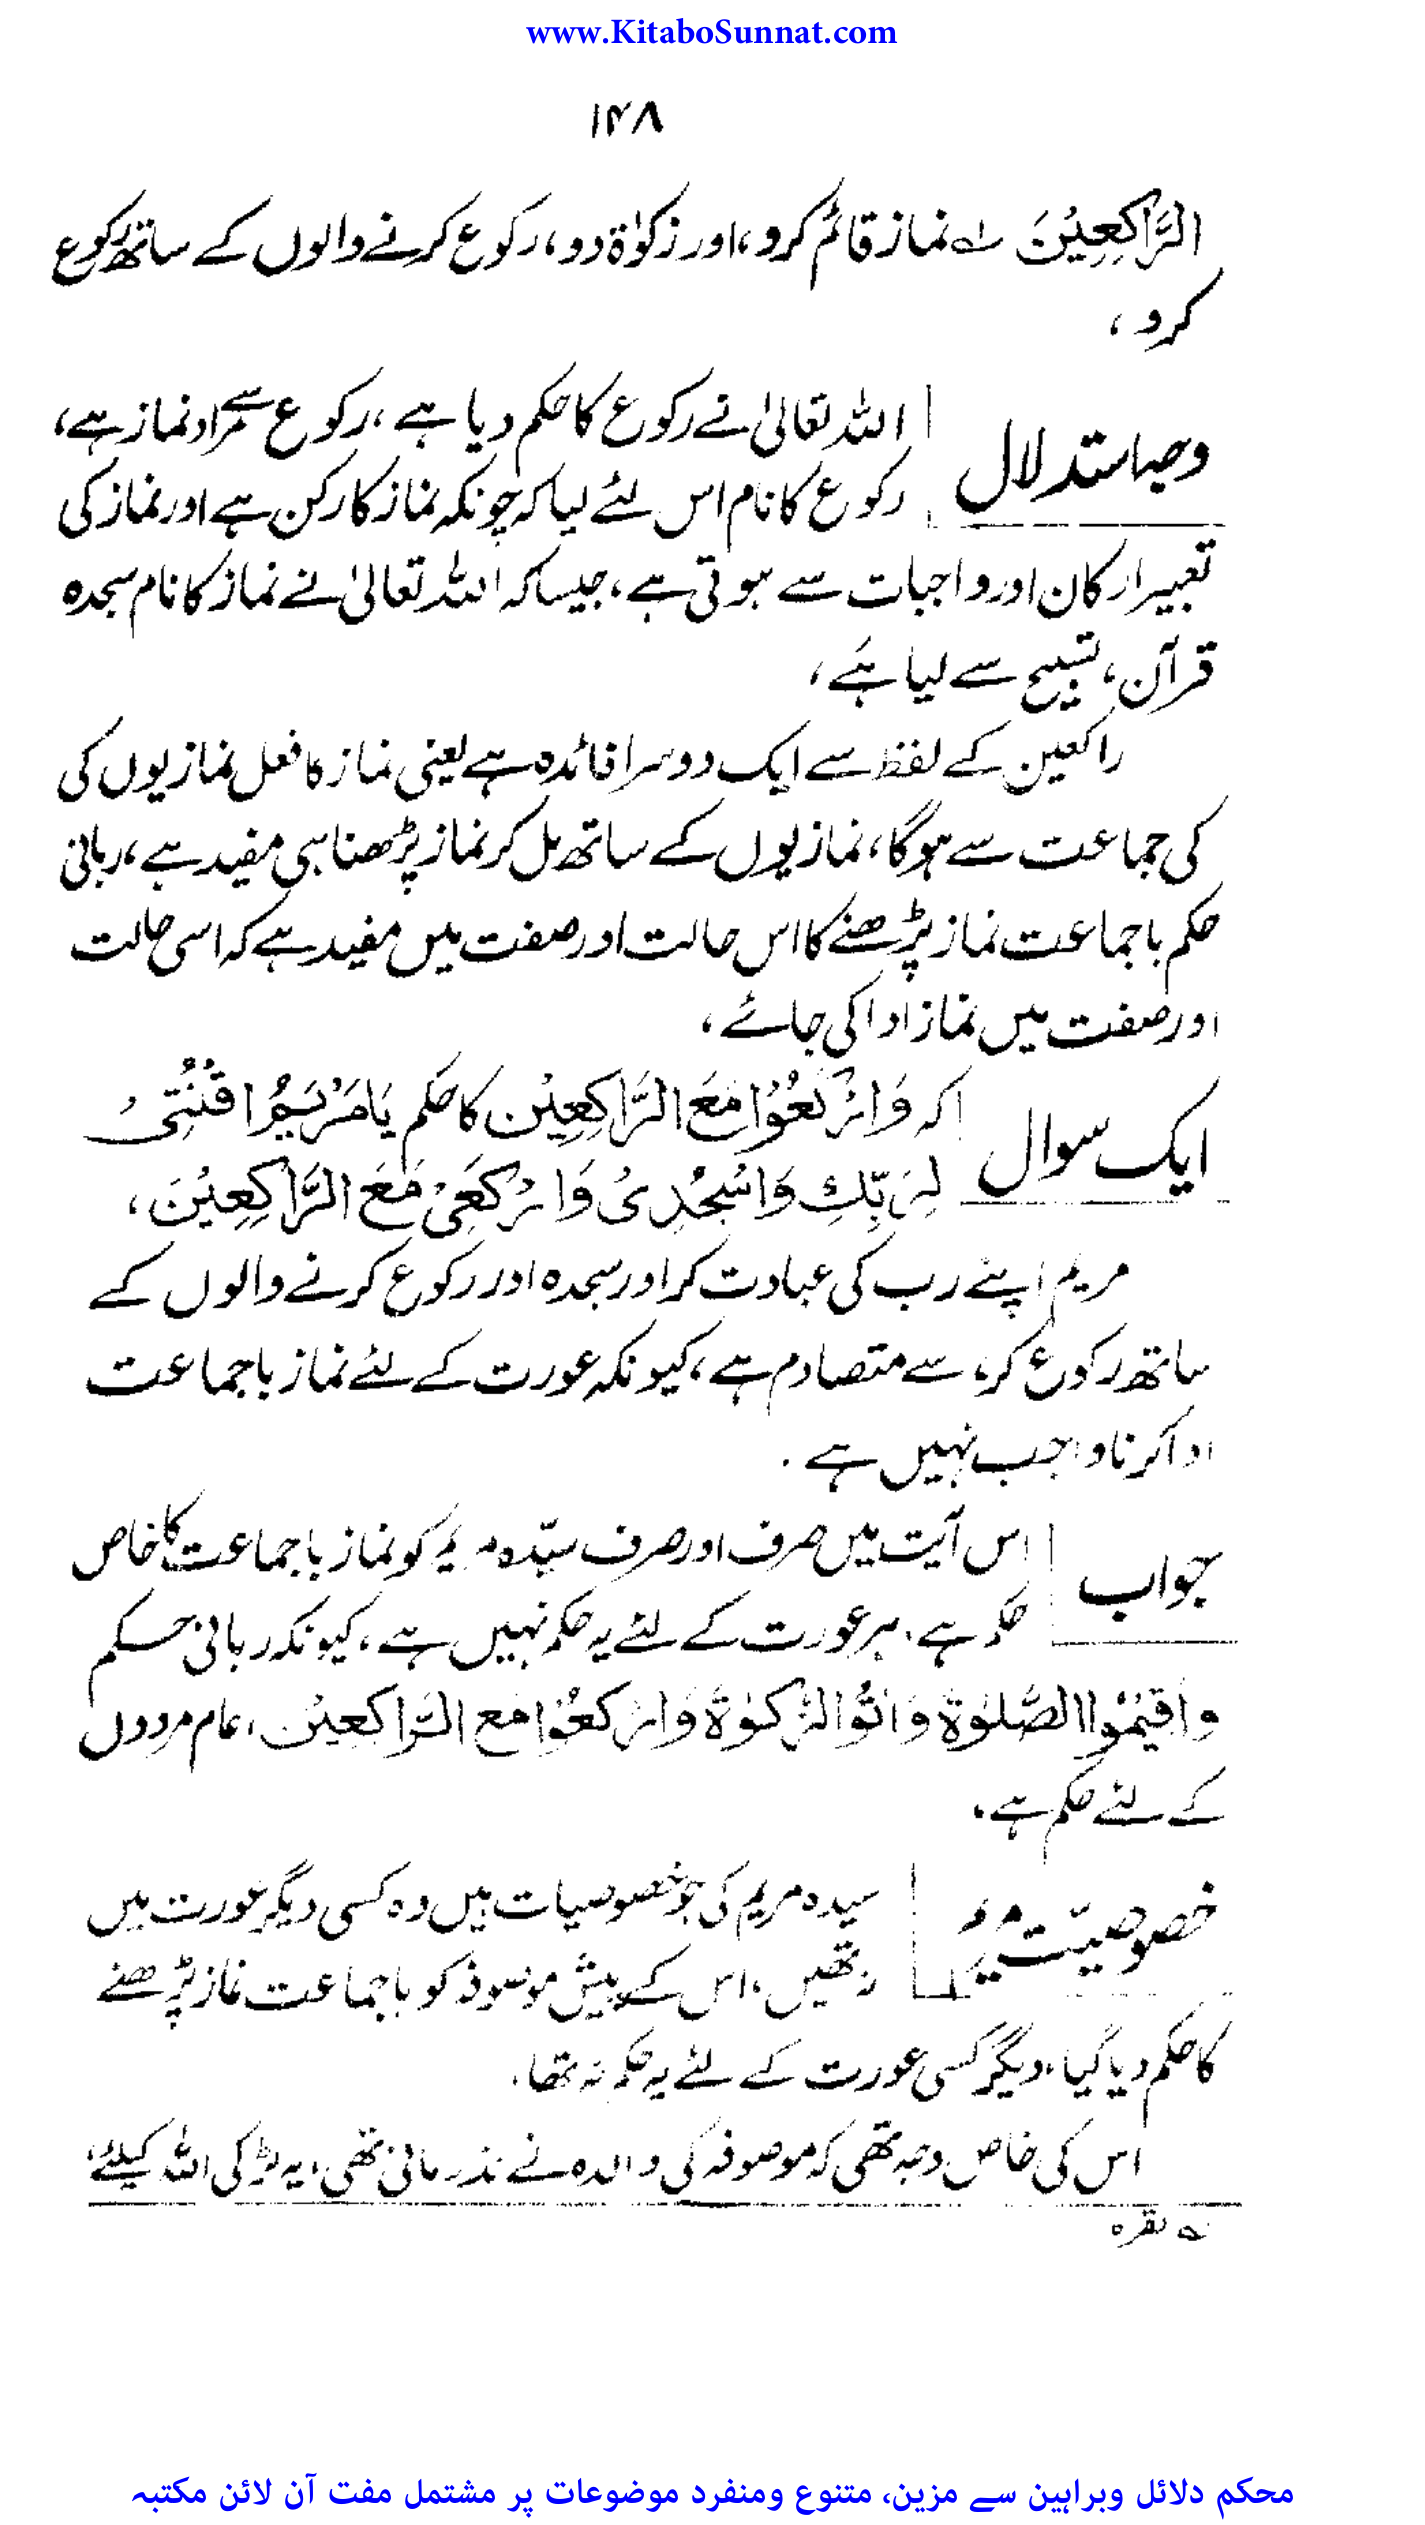 www.KitaboSunnat.com
۱۴۸
الرَّاکِعِیْنَ لہ نماز قائم کرو، اور زکوٰۃ دو، رکوع کرنے والوں کے ساتھ رکوع
کرو،
وجہ استدلال
اللہ تعالیٰ نے رکوع کا حکم دیا ہے، رکوع سے مراد نماز ہے،
رکوع کا نام اس لئے لیا کہ چونکہ نماز کا رکن ہے اور نماز کی
تعبیر ارکان اور واجبات سے ہوتی ہے، جیسا کہ اللہ تعالیٰ نے نماز کا نام سجدہ
قرآن، تسبیح سے لیا ہے،
راکعین کے لفظ سے ایک دوسرا فائدہ ہے یعنی نماز کا فعل نمازیوں کی
کی جماعت سے ہوگا، نمازیوں کے ساتھ مل کر نماز پڑھنا ہی مفید ہے، ربانی
حکم باجماعت نماز پڑھنے کا اس حالت اور صفت میں مفید ہے کہ اسی حالت
اور صفت میں نماز ادا کی جائے،
ایک سوال
کہ وَارْکَعُوْا مَعَ الرَّاکِعِیْن کا حکم یَا مَرْیَمُ اقْنُتِیْ
لِرَبِّکِ وَاسْجُدِیْ وَارْکَعِیْ مَعَ الرَّاکِعِیْنَ،
مریم اپنے رب کی عبادت کر اور سجدہ اور رکوع کرنے والوں کے
ساتھ رکوع کر، سے متصادم ہے، کیونکہ عورت کے لئے نماز باجماعت
ادا کرنا واجب نہیں ہے۔
جواب
اس آیت میں صرف اور صرف سیّدہ مریم کو نماز باجماعت کا خاص
حکم ہے۔ ہر عورت کے لئے یہ حکم نہیں ہے، کیونکہ ربانی حکم
وَاَقِیْمُوا الصَّلٰوۃَ وَاٰتُوا الزَّکٰوۃَ وَارْکَعُوْا مَعَ الرَّاکِعِیْن، عام مردوں
کے لئے حکم ہے۔
خصوصیّت مریم
سیدہ مریم کی جو خصوصیات ہیں وہ کسی دیگر عورت میں
نہ تھیں، اس کے پیش موصوفہ کو باجماعت نماز پڑھنے
کا حکم دیا گیا، دیگر کسی عورت کے لئے یہ حکم نہ تھا۔
اس کی خاص وجہ تھی کہ موصوفہ کی والدہ نے نذر مانی تھی، یہ لڑکی اللہ کیلئے،
لہ بقرہ
محکم دلائل وبراہین سے مزین، متنوع ومنفرد موضوعات پر مشتمل مفت آن لائن مکتبہ